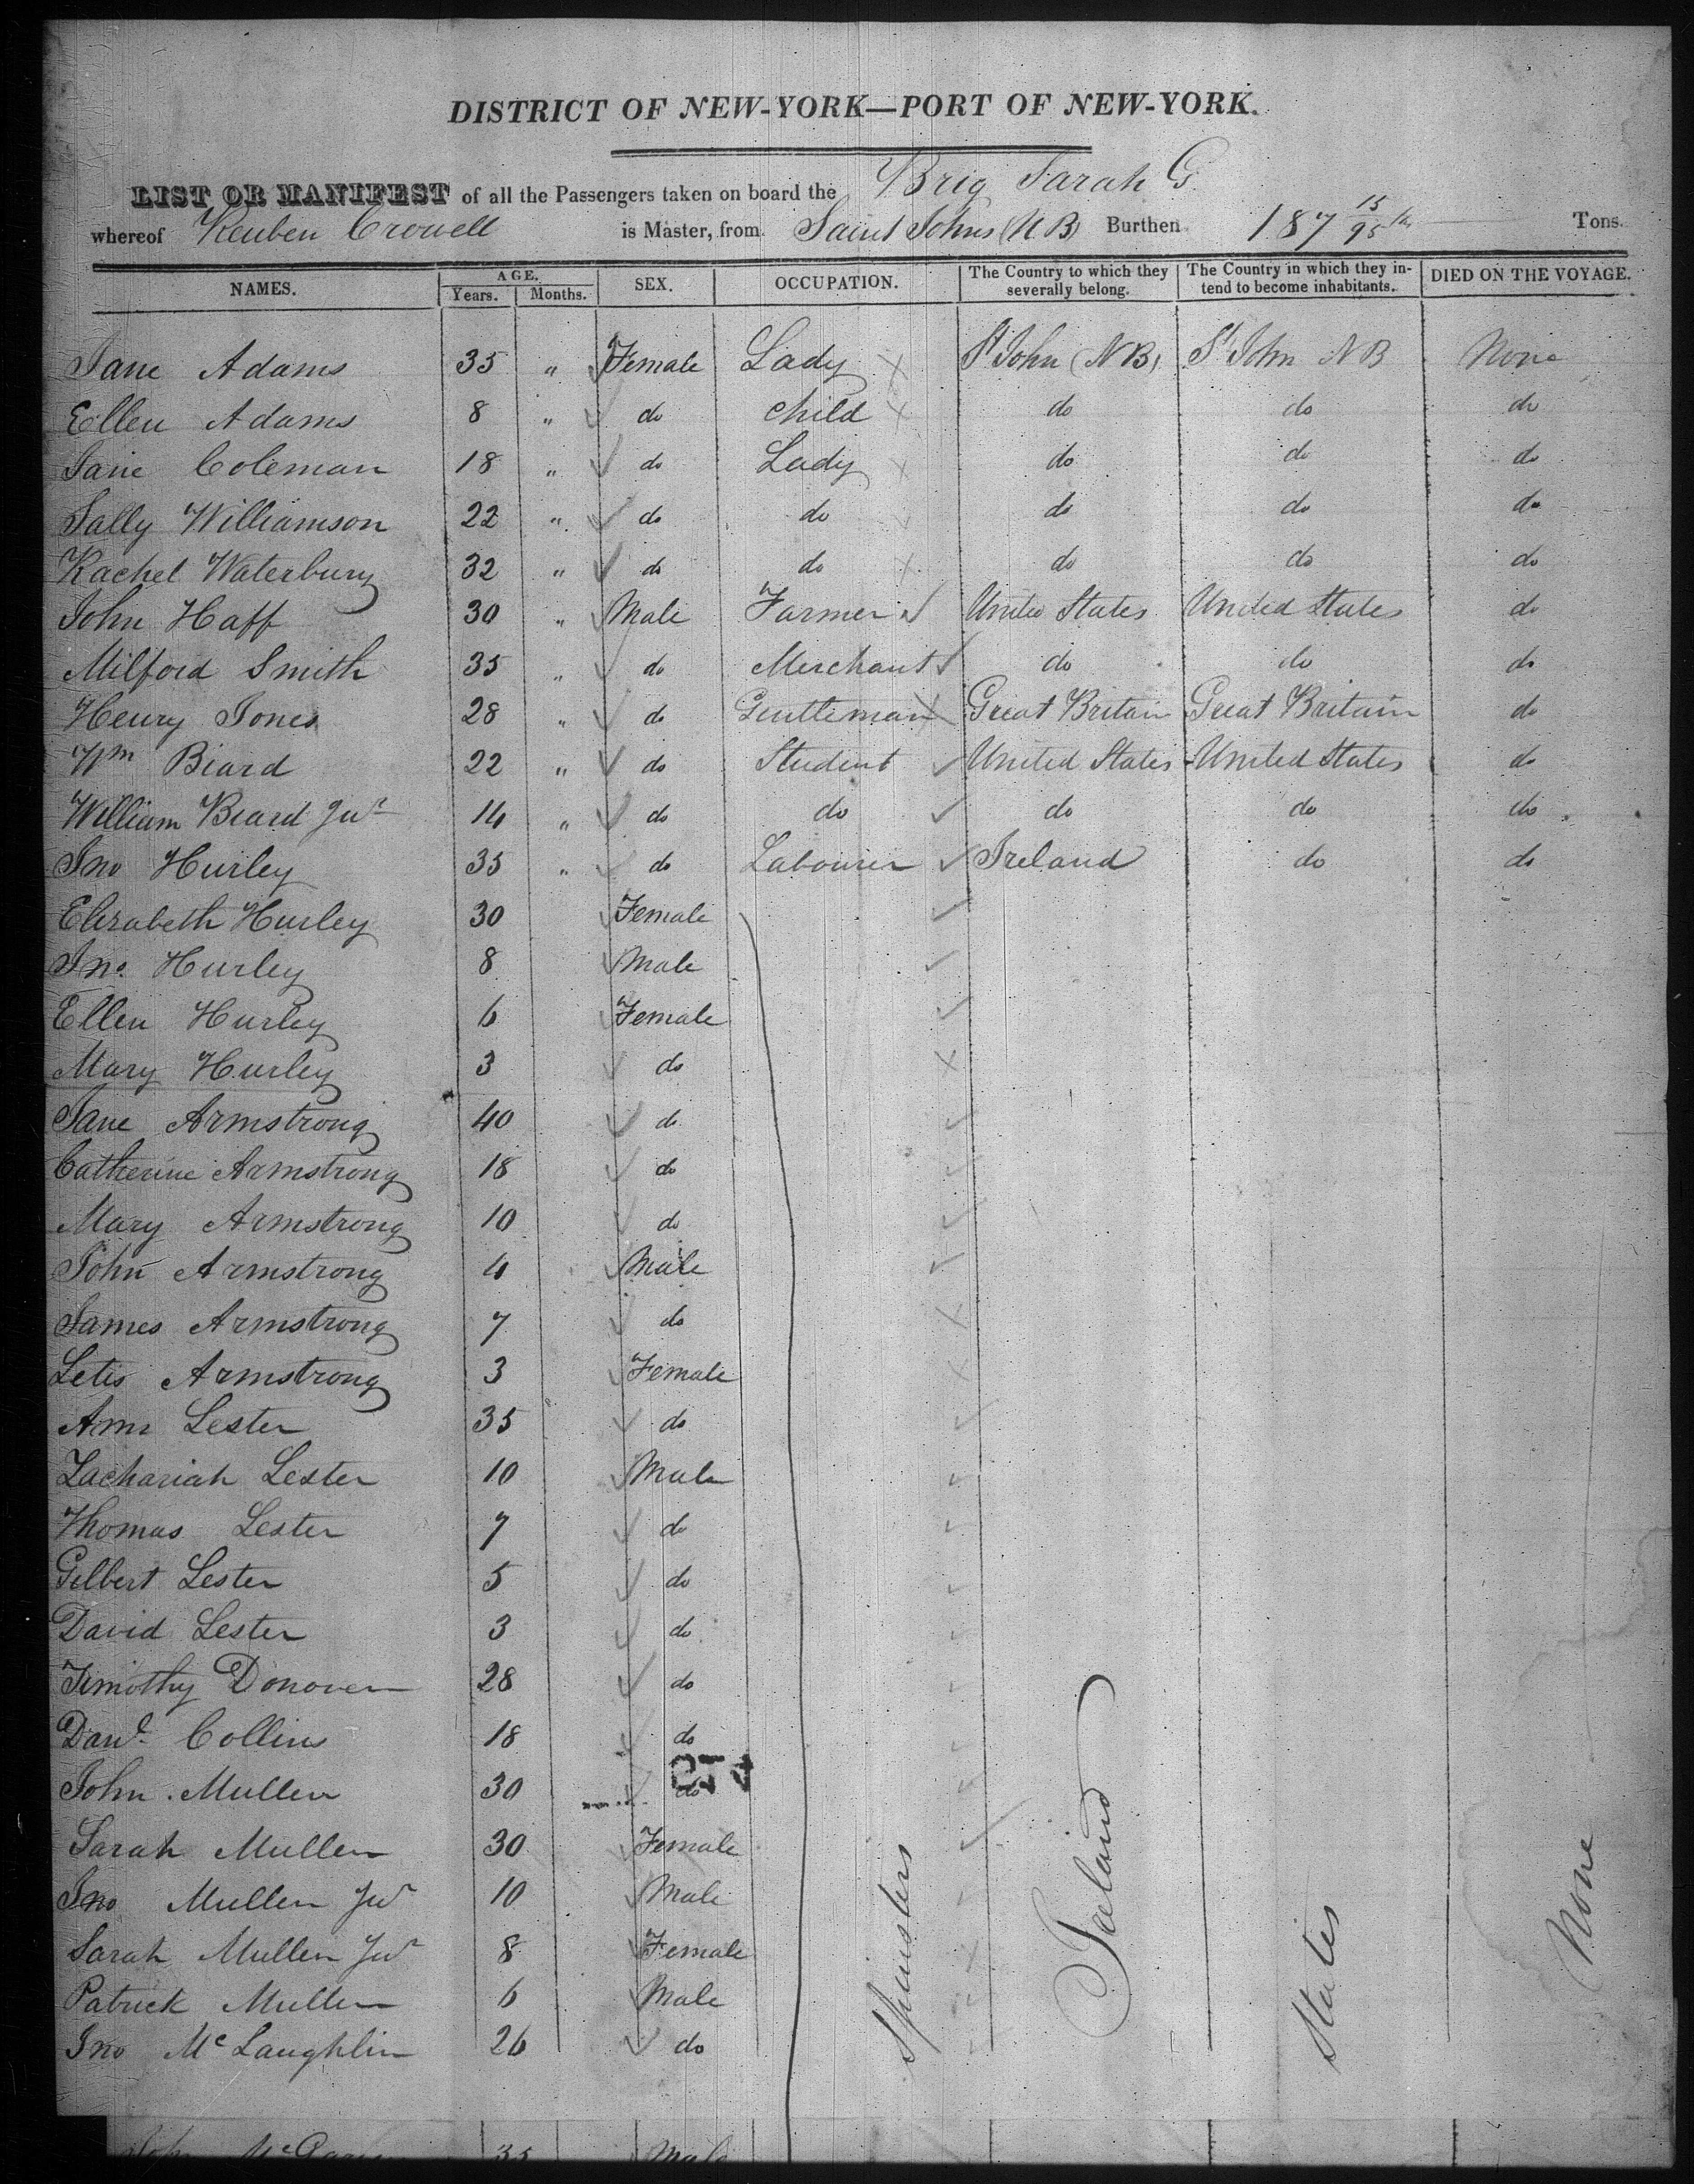 DISTRICT OF NEW-YORK—PORT OF NEW-YORK.
LIST OR MANIFEST of all the Passengers taken on board the Brig Sarah G.
whereof Reuben Crowell is Master, from Saint Johns (N B) Burthen 187 15/95 Tons.
NAMES. AGE. Years. Months. SEX. OCCUPATION. The Country to which they severally belong. The Country in which they intend to become inhabitants. DIED ON THE VOYAGE.
Jane Adams 35 " Female Lady St John (N B) St John N B None
Ellen Adams 8 " do child do do do
Jane Coleman 18 " do Lady do do do
Sally Williamson 22 " do do do do do
Rachel Waterbury 32 " do do do do do
John Haff 30 " Male Farmer United States United States do
Milford Smith 35 " do Merchant do do do
Henry Jones 28 " do Gentleman Great Britain Great Britain do
Wm Biard 22 " do Student United States United States do
William Beard Jur 14 " do do do do do
Jno Hurley 35 " do Labourer Ireland do do
Elizabeth Hurley 30 Female
Jno. Hurley 8 Male
Ellen Hurley 6 Female
Mary Hurley 3 do
Jane Armstrong 40 do
Catherine Armstrong 18 do
Mary Armstrong 10 do
John Armstrong 4 Male
James Armstrong 7 do
Letis Armstrong 3 Female
Ann Lester 35 do
Zachariah Lester 10 Male
Thomas Lester 7 do
Gilbert Lester 5 do
David Lester 3 do
Timothy Donoven 28 do
Danl. Collins 18 do
John Mullen 30 do
Sarah Mullen 30 Female
Jno Mullen Jur 10 Male
Sarah Mullen Jur 8 Female
Patrick Mullen 6 Male
Jno McLaughlin 26 do
Spinsters Ireland States None
John 35 Male